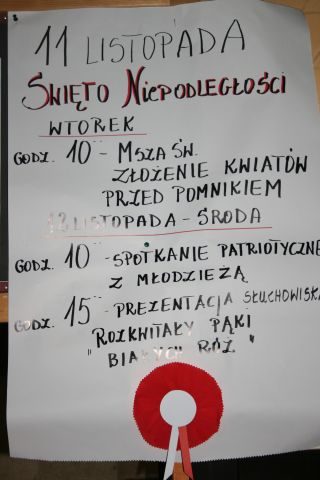 11 LISTOPADA
ŚWIĘTO NIEPODLEGŁOŚCI
WTOREK
GODZ. 10 - MSZA ŚW.
ZŁOŻENIE KWIATÓW
PRZED POMNIKIEM
12 LISTOPADA - ŚRODA
GODZ. 10 - SPOTKANIE PATRIOTYCZNE
Z MŁODZIEŻĄ
GODZ. 15 - PREZENTACJA SŁUCHOWISKA
ROZKWITAŁY PĄKI
" BIAŁYCH RÓŻ "